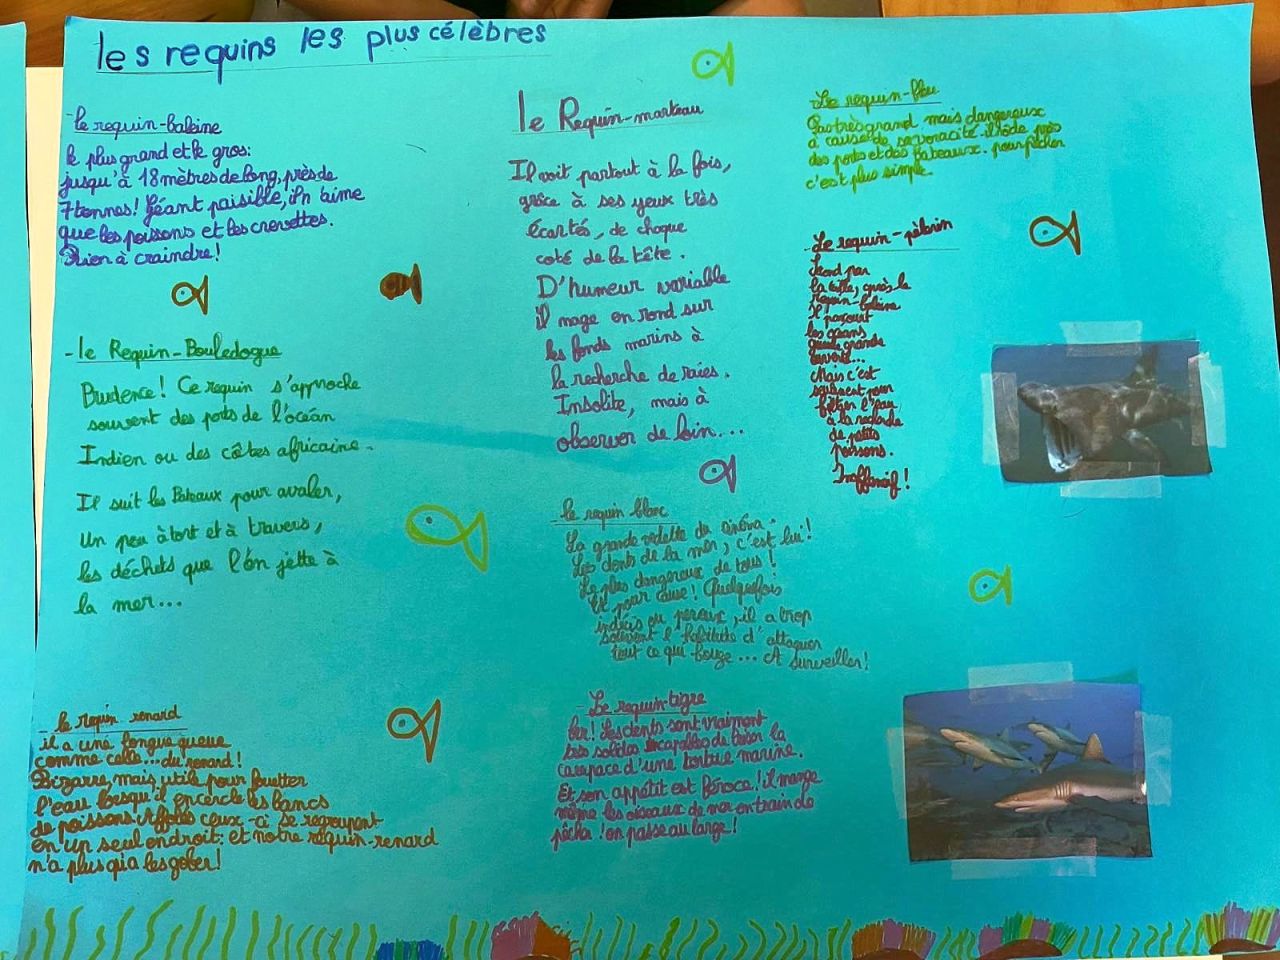 les requins les plus célèbres
- le requin-baleine
le plus grand et le gros:
jusqu'à 18 mètres de long, près de
7 tonnes! Géant paisible, il n'aime
que les poissons et les crevettes.
Rien à craindre!
- le Requin-Bouledogue
Prudence! Ce requin s'approche
souvent des ports de l'océan
Indien ou des côtes africaine.
Il suit les Bateaux pour avaler,
un peu à tort et à travers,
les déchets que l'on jette à
la mer...
- le requin renard
il a une longue queue
comme celle... du renard!
Bizarre, mais utile pour fouetter
l'eau lorsqu'il encercle les bancs
de poissons. Affolés ceux-ci se regroupent
en un seul endroit: et notre requin-renard
n'a plus qu'a les gober!
le Requin-marteau
Il voit partout à la fois,
grâce à ses yeux très
écartés, de chaque
coté de la tête.
D'humeur variable
il nage en rond sur
les fonds marins à
la recherche de raies.
Insolite, mais à
observer de loin...
- le requin blanc
La grande vedette du cinéma.
Les dents de la mer, c'est lui!
Le plus dangereux de tous!
Et pour cause! Quelquefois
indécis ou peureux, il a trop
souvent l'habitude d'attaquer
tout ce qui bouge... A surveiller!
- Le requin-tigre
brr! Les dents sont vraiment
très solides capables de briser la
carapace d'une tortue marine.
Et son appétit est féroce! il mange
même les oiseaux de mer en train de
pêcher! on passe au large!
- Le requin-bleu
Pas très grand mais dangereux
à cause de sa voracité. il rôde près
des ports et des bateaux. pour pêcher
c'est plus simple.
- Le requin-pèlerin
Second par
la taille, après le
requin-baleine
Il parcourt
les océans
gueule grande
ouverte...
Mais c'est
seulement pour
filtrer l'eau
à la recherche
de petits
poissons.
Inoffensif!